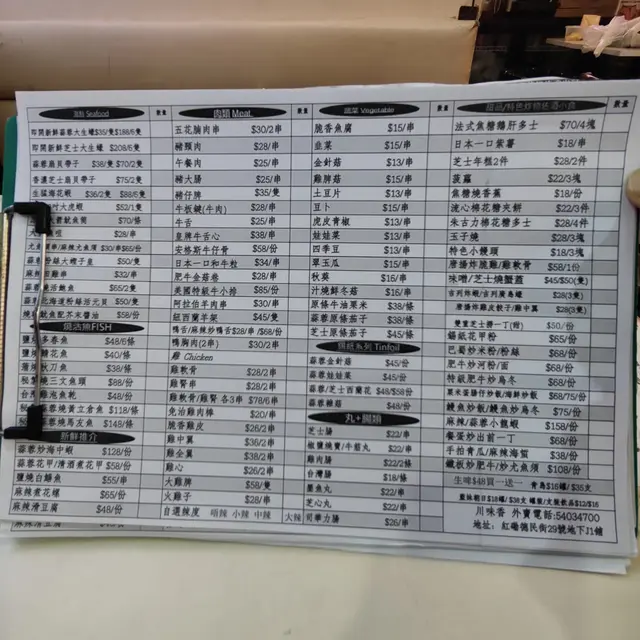 海鮮 Seafood 數量
即開新鮮蒜蓉大生蠔$35/隻$188/6隻
即開新鮮芝士大生蠔 $208/6隻
蒜蓉扇貝帶子 $38/隻 $70/2隻
香濃芝士扇貝帶子 $75/2隻
生猛海花蝦 $36/2隻 $88/6隻
大虎蝦 $52/1隻
$70/條
$28/串
/麻辣大魷魚須 $30/串$65/份
粉絲大蟶子皇 $50/隻
$32/串
鮑魚 $65/2隻
北海道粉絲元貝 $50/隻
魷魚配芥末醬油 $58/份
燒活魚FISH
多春魚 $48/6條
$40/條
秋刀魚 $38/條
燒三文魚頭 $88/份
泡魚乾 $48/份
蒜蓉燒黃立倉魚 $118/條
蒜蓉燒馬友魚 $148/條
新鮮推介
蒜蓉炒海中蝦 $128/份
蒜蓉花甲/清酒煮花甲 $58/份
鹽燒白鱔魚 $55/串
麻辣煮花螺 $65/份
麻辣滑豆腐 $48/份
肉類 Meat 數量
五花腩肉串 $30/2串
豬頸肉 $28/串
午餐肉 $25/串
豬大腸 $25/串
豬仔脾 $35/隻
牛板鍵(牛肉) $28/串
牛舌 $25/串
皇牌牛舌心 $38/串
安格斯牛仔骨 $58/份
日本一口和牛粒 $34/串
肥牛金菇卷 $28/串
美國特級牛小排 $85/份
阿拉伯羊肉串 $30/串
紐西蘭羊架 $45/隻
鴨舌/麻辣炒鴨舌$28/串 /$68/份
鴨胸肉(2串) $30/2串
雞 Chicken
雞軟骨 $28/2串
雞腎串 $28/2串
雞軟骨/雞腎 各3串 $78/6串
免治雞肉棒 $20/串
脆香雞皮 $26/2串
雞中翼 $36/2串
雞全翼 $38/2串
雞心 $26/2串
大雞脾 $58/隻
火雞子 $28/串
自選辣度 唔辣 小辣 中辣 大辣
蔬菜 Vegetable 數量
脆香魚腐 $15/串
韭菜 $15/串
金針菇 $13/串
雞脾菇 $15/串
土豆片 $13/串
豆卜 $15/串
虎皮青椒 $13/串
娃娃菜 $13/串
四季豆 $13/串
翠玉瓜 $15/串
秋葵 $16/串
汁燒鮮冬菇 $16/串
原條牛油粟米 $38/條
蒜蓉原條茄子 $38/條
芝士原條茄子 $45/條
錫紙系列 Tinfoil
蒜蓉金針菇 $45/份
蒜蓉娃娃菜 $45/份
蒜蓉/芝士西蘭花 $48/$58份
蒜蓉雜菇 $48/份
丸+腸類
芝士腸 $22/串
椒鹽燒賣/牛筋丸 $22/串
雞肉腸 $22/2條
台灣腸 $18/條
墨魚丸 $22/串
芝心丸 $22/串
司華力腸 $26/串
甜品/特色炸物佐酒小食 數量
法式焦糖鵝肝多士 $70/4塊
日本一口紫薯 $18/串
芝士年糕2件 $28/2件
菠蘿 $22/3塊
焦糖燒香蕉 $18/份
流心棉花糖夾餅 $22/3件
朱古力棉花糖多士 $28/4件
玉子燒 $28/3塊
特色小饅頭 $18/3塊
唐揚炸脆雞/雞軟骨 $58/1份
味噌/芝士燒蟹蓋 $45/$50(隻)
吉列炸蝦/吉列廣島蠔 $28(3隻)
唐揚炸雞皮餃子/雞中翼 $28(3隻)
雙重芝士撈一丁(附) $50/份
錫紙花甲粉 $65/份
巴蜀炒米粉/粉絲 $68/份
肥牛炒河粉/面 $68/份
特級肥牛炒烏冬 $68/份
粟米蛋腸仔炒飯/海鮮炒飯 $68/75/份
鰻魚炒飯/鰻魚炒烏冬 $75/份
麻辣/蒜蓉小龍蝦 $158/份
餐蛋炒出前一丁 $68/份
手拍青瓜/麻辣海蜇 $38/份
鐵板炒肥牛/炒尤魚須 $108/份
生啤$48買一送一 青島$16罐/$35支
川味香 外賣電話:54034700
地址: 紅磡德民街29號地下J1舖